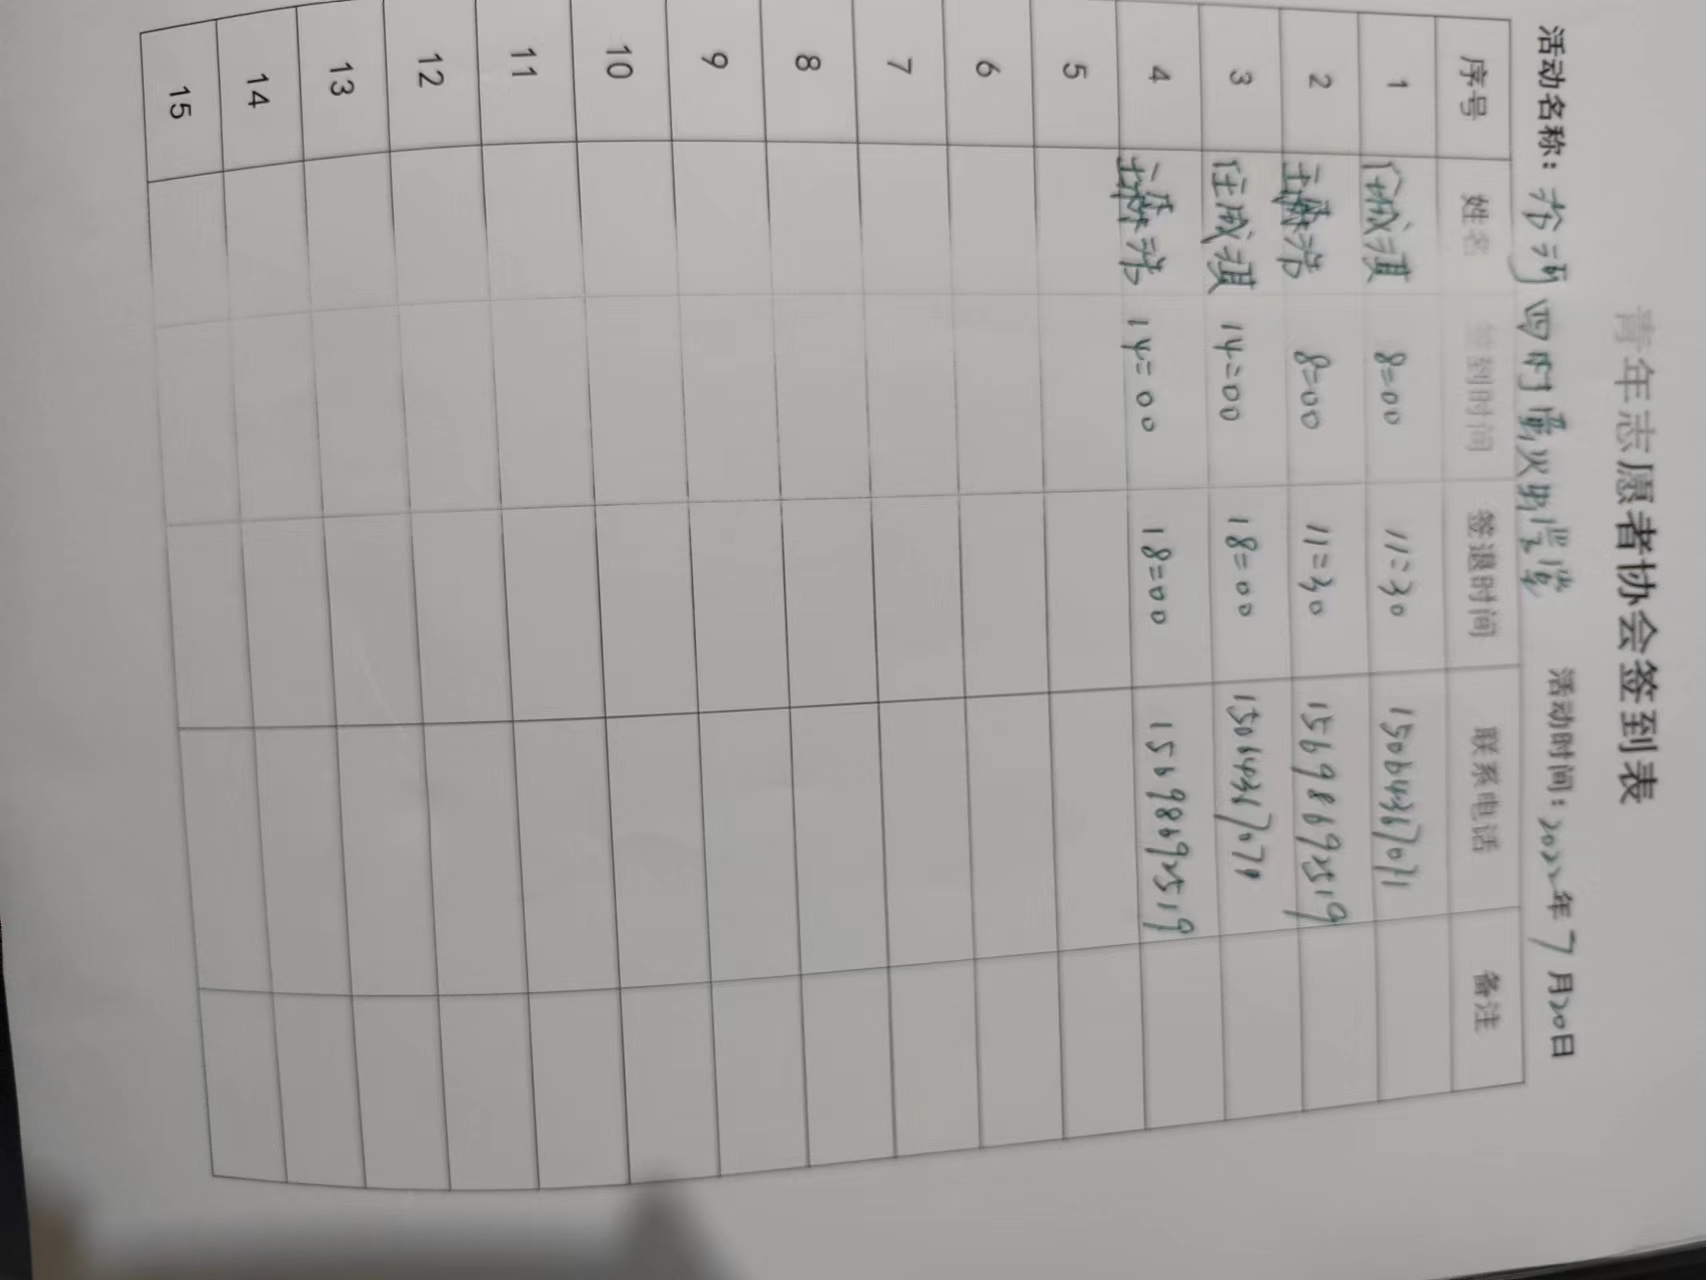 青年志愿者协会签到表
活动名称： 四时 火 堂 活动时间：2022年7月20日
序号 姓名 签到时间 签退时间 联系电话 备注
1 8:00 11:30 15064367071
2 8:00 11:30 15698692519
3 任成淇 14:00 18:00 15064367071
4 14:00 18:00 15698692519
5
6
7
8
9
10
11
12
13
14
15